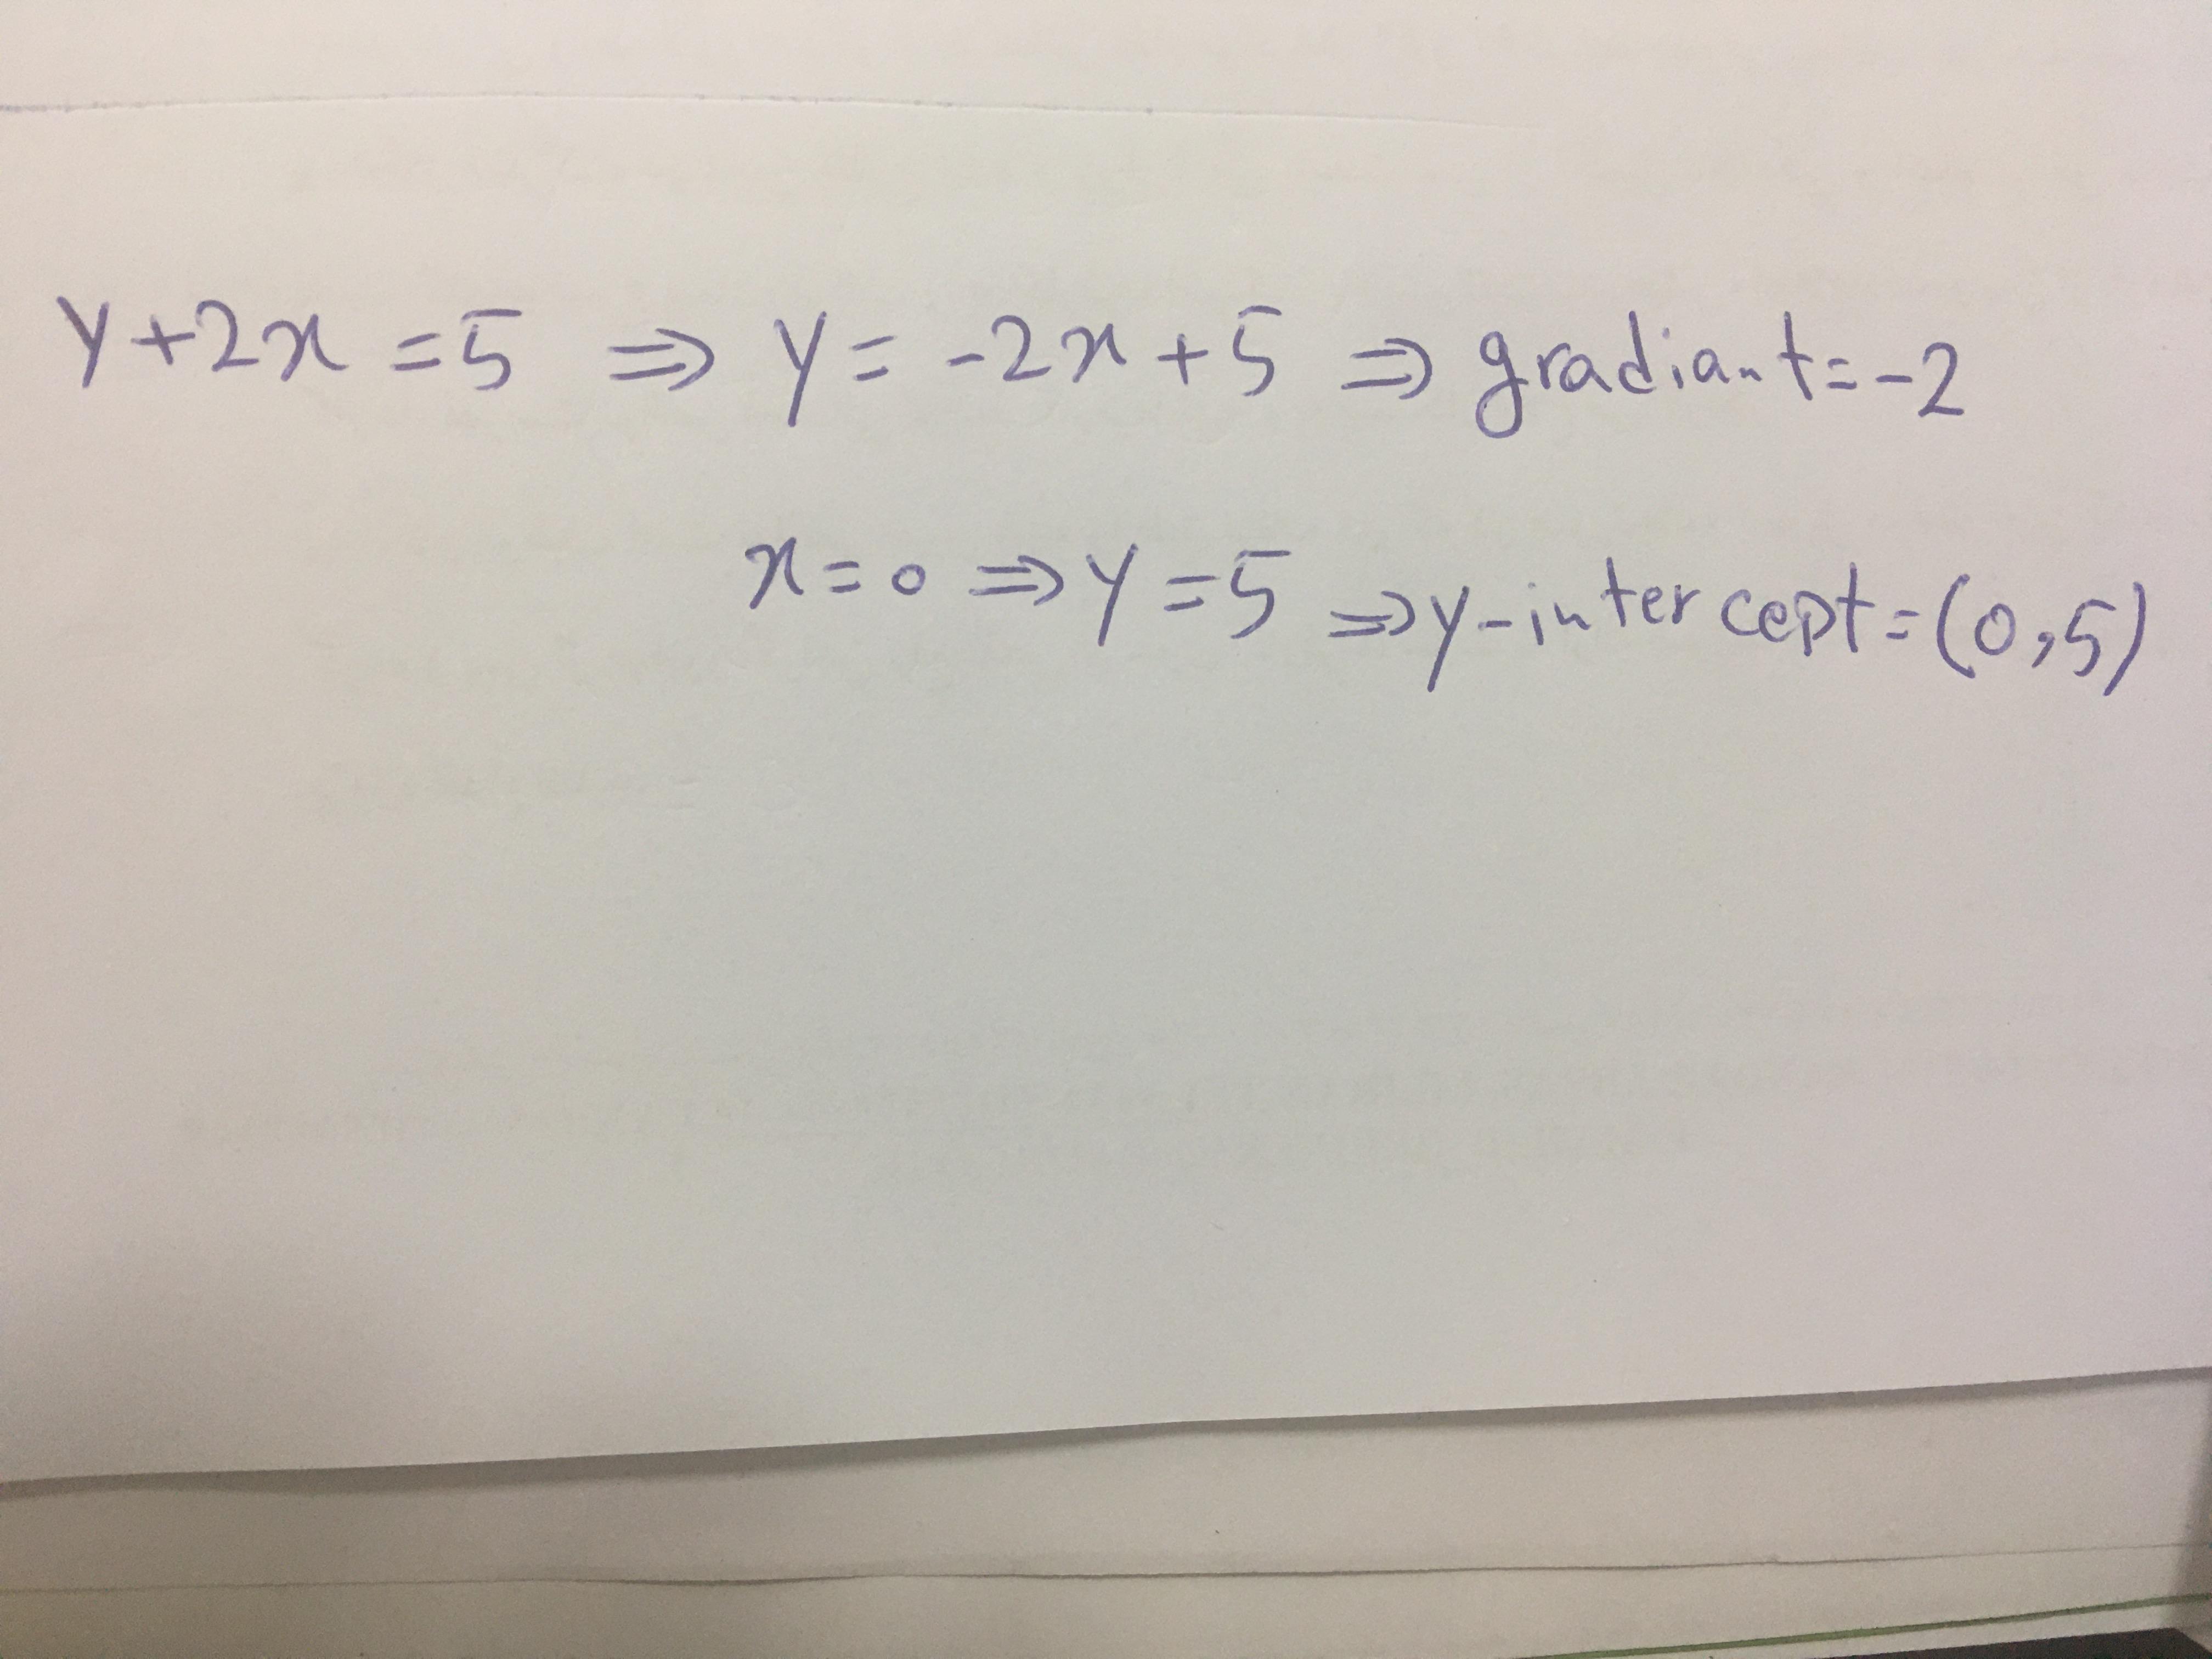 y+2x=5 ⇒ y=-2x+5 ⇒ gradiant=-2
x=0 ⇒ y=5 ⇒ y-intercept=(0,5)